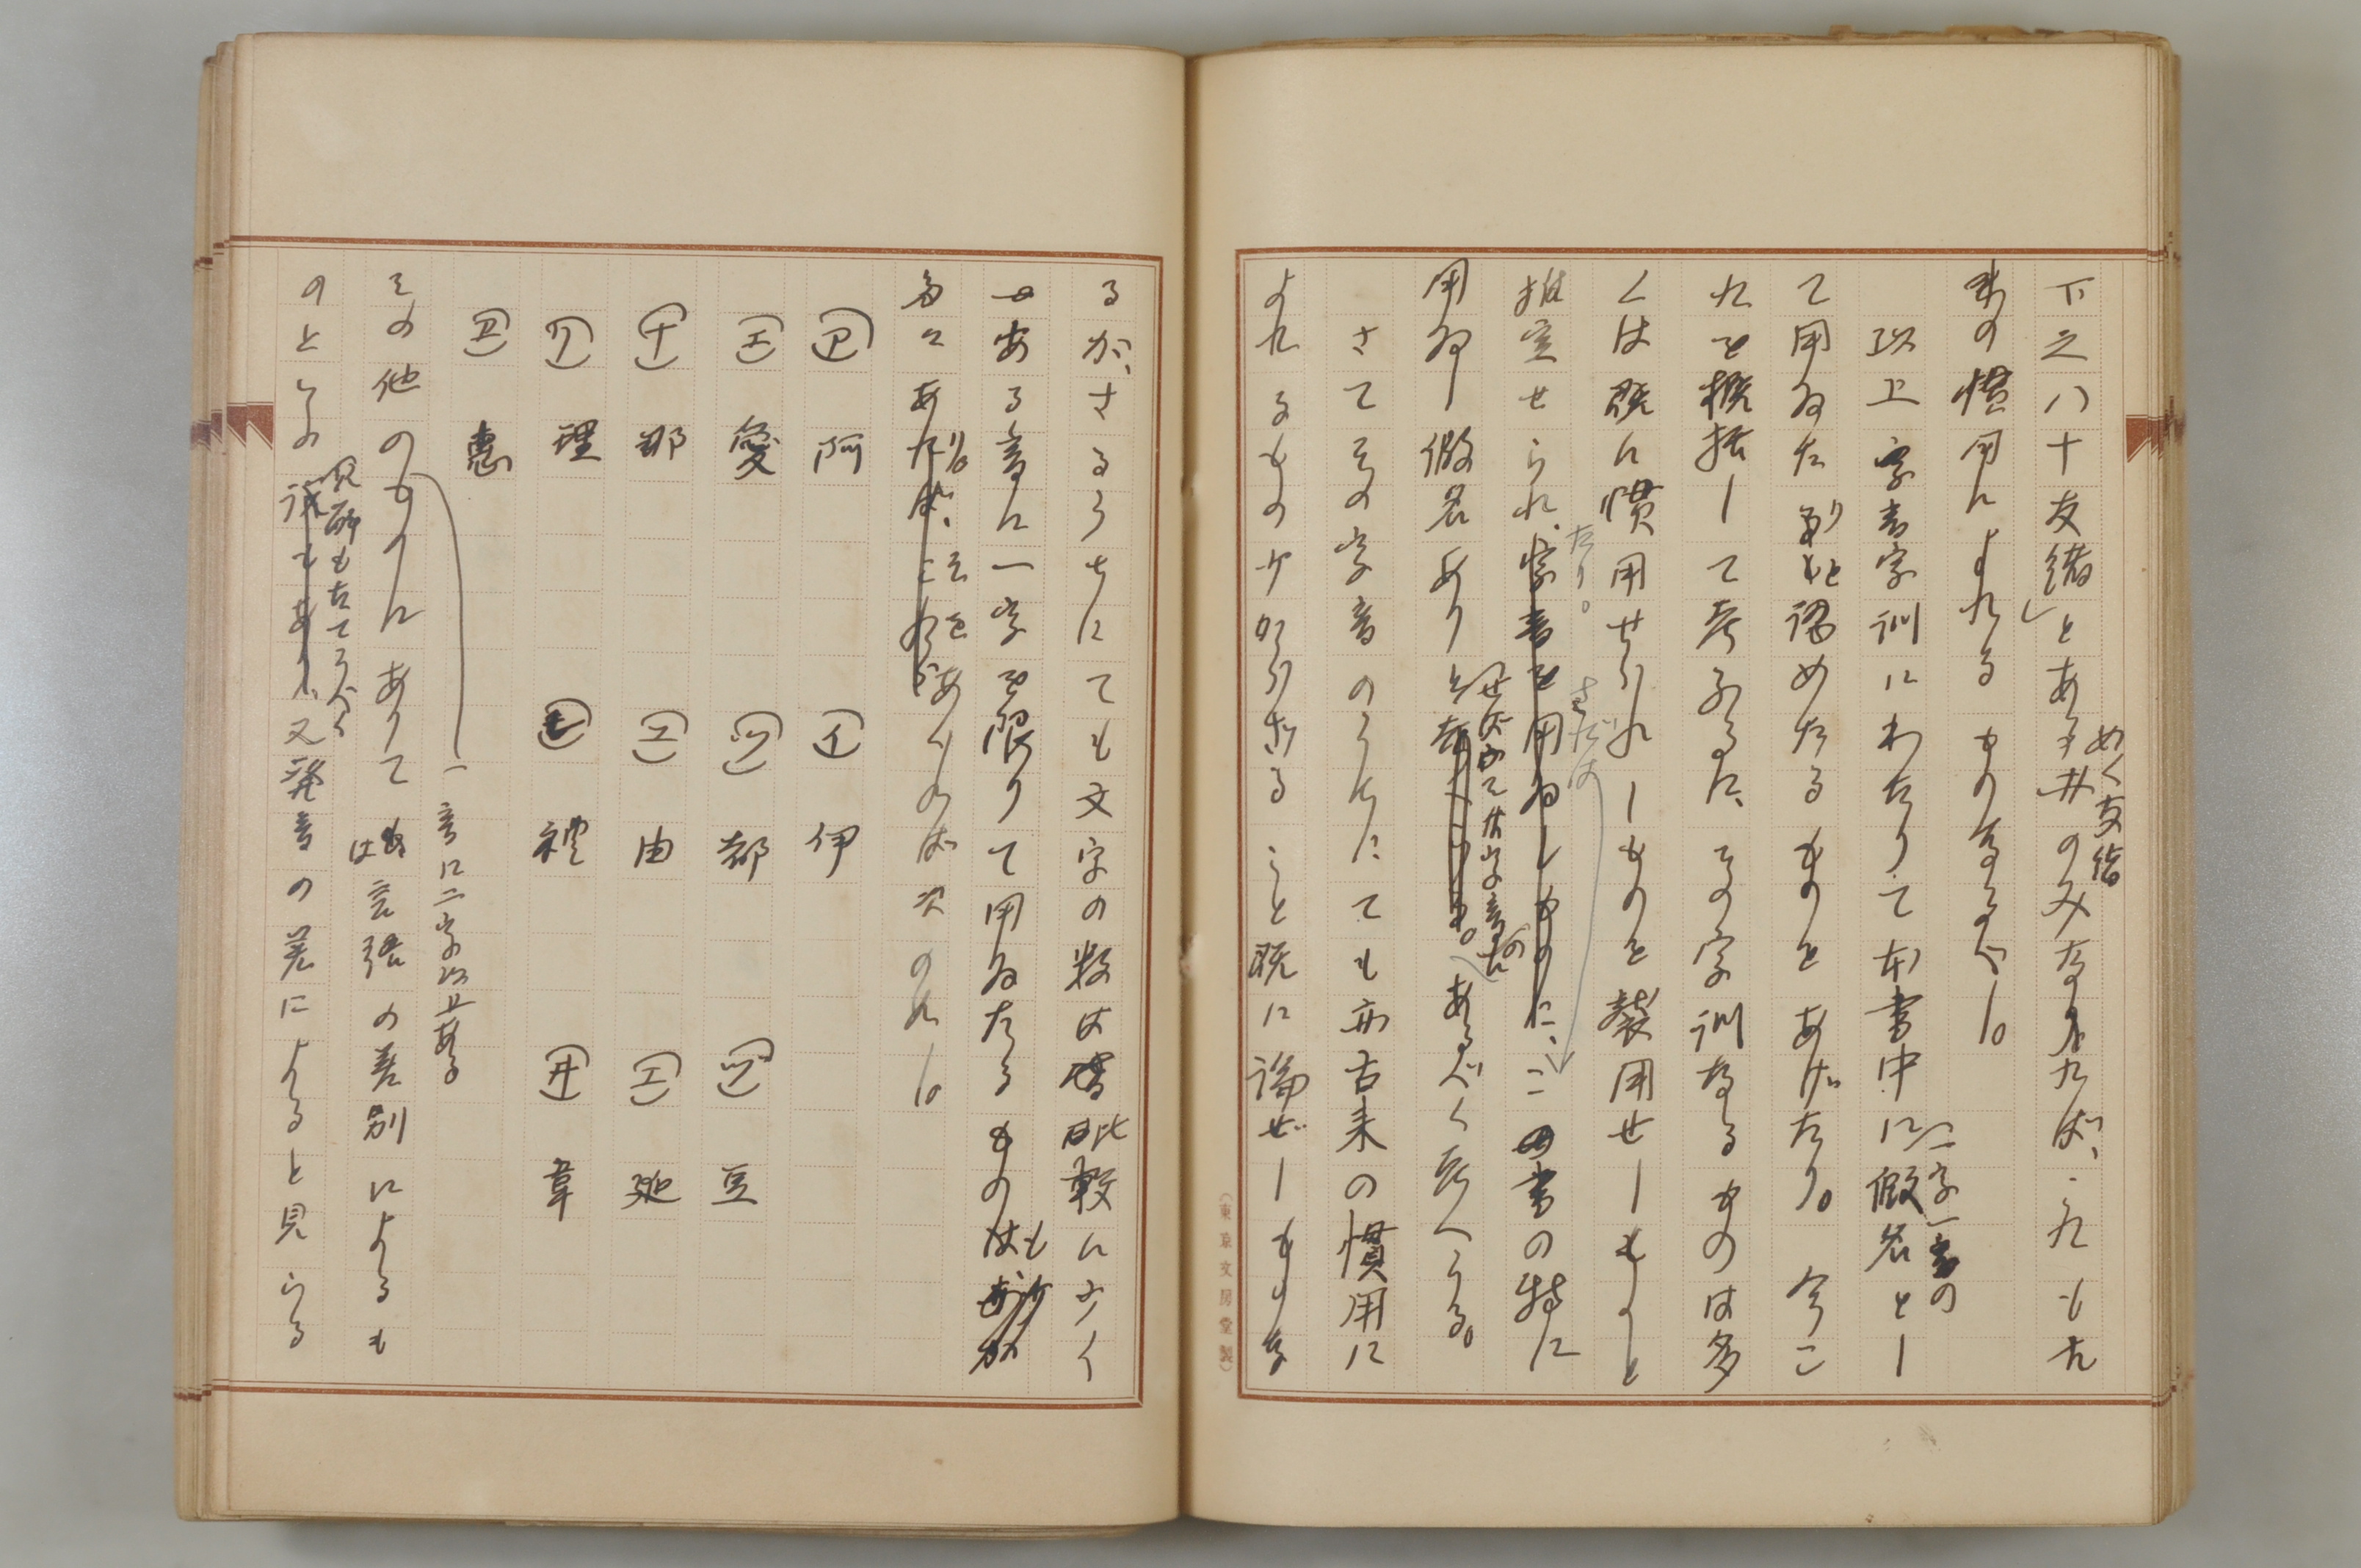 下之八十友緒」とある井のみなれば、これも古
めく友緒
来の慣用によれるものなるべし。
以上字音字訓にわたりて本書中に假名とし
一字一音の
て用ゐたりと認めたるものをあげたり。今こ
れを概括して考ふるに、その字訓なるものは多
くは既に慣用せられしものを襲用せしものと
たり。
さだは
推定せられ、字音を用ゐしものに、この書の特に
用ゐし假名ありと
あるべく考へらる。
さてその字音のうちにても亦古来の慣用に
よれるもの少からざること既に論ぜしもあ
(東京文房堂製)
るが、さるうちにても文字の数は比較に少く
ある音に一字を限りて用ゐたるものも
多々あり。そをあぐれば次の如し。
(ア) 阿 (イ) 伊
(エ) 愛 (ツ) 都 (ヅ) 豆
(ナ) 那 (ユ) 由 (エ) 延
(リ) 理 (レ) 禮 (井) 韋
(ヱ) 恵
一音に二字以上ある
その他のものにありては言語の差別によるも
のと
又発音の差によると見らる